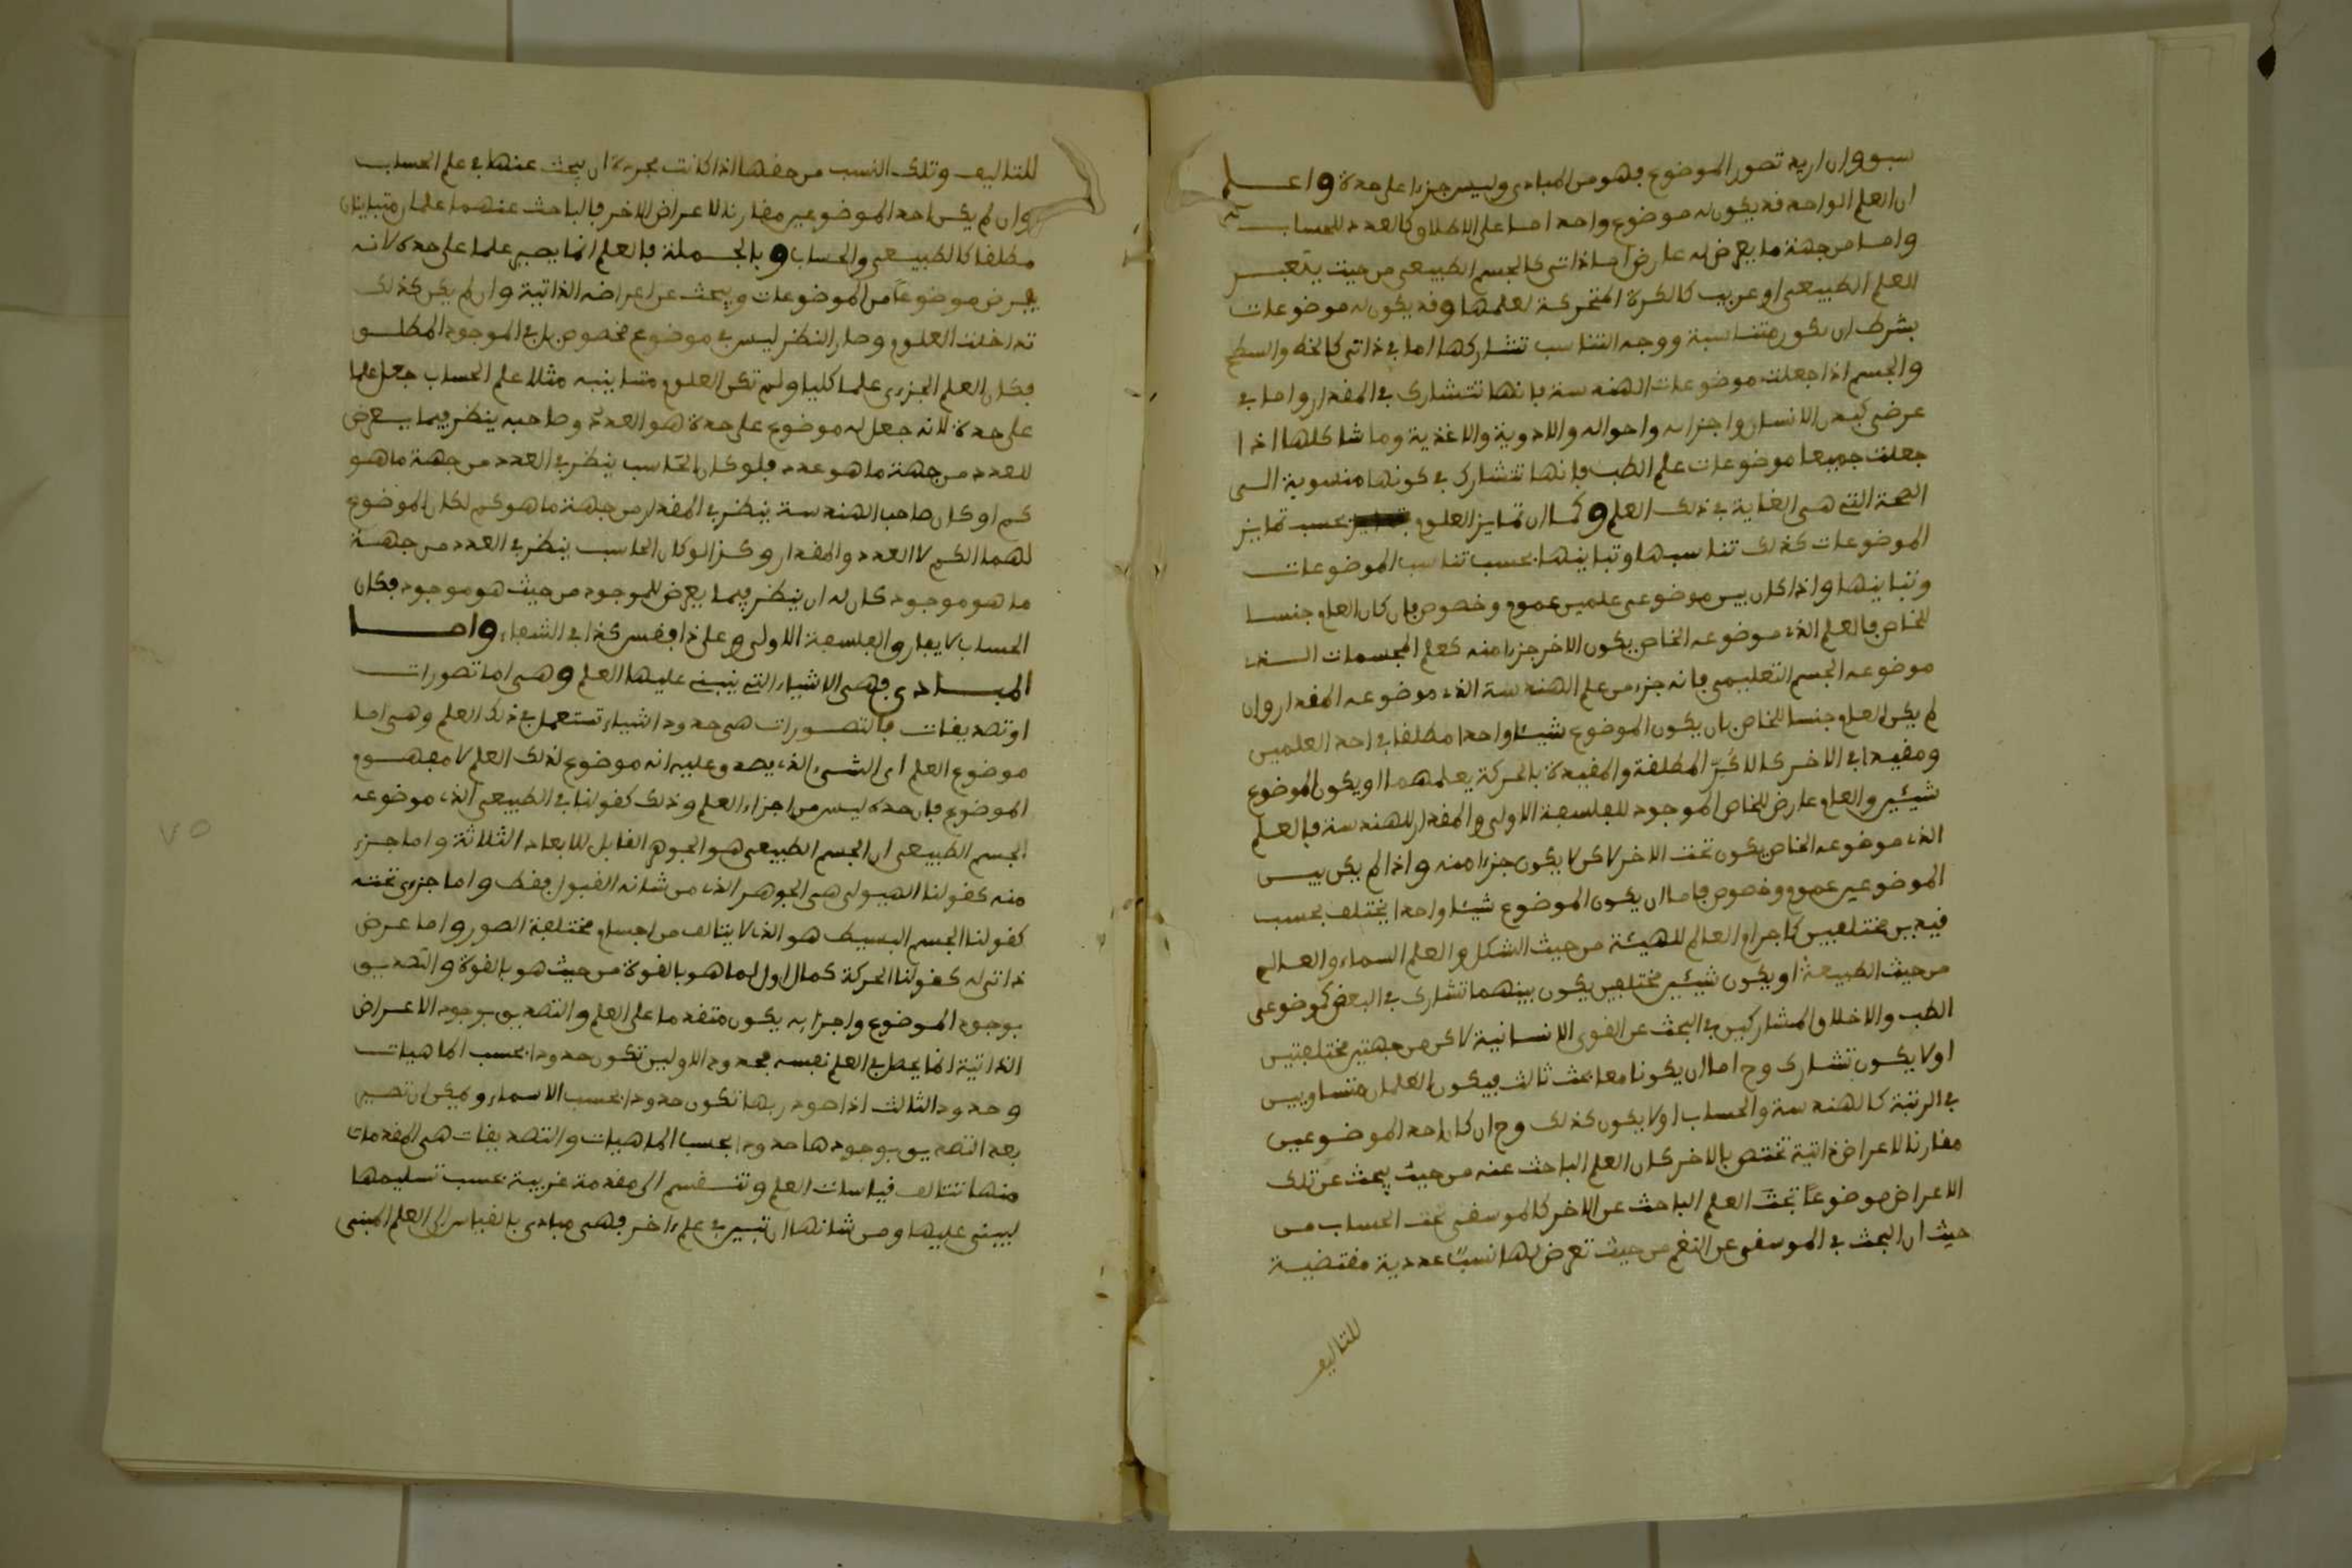 سبق وان اريد تصور الموضوع فهو من المبادى وليس جزءا على حدة واعلم
ان العلم الواحد قد يكون له موضوع واحد اما على الاطلاق كالعدد للحساب
واما من جهة ما يعرض له عارض اما ذاتى كالجسم الطبيعى من حيث يتغير
للعلم الطبيعى او غريب كالكرة المتحركة لعلمها وقد يكون له موضوعات
بشرط ان تكون متناسبة ووجه التناسب تشاركها اما فى ذاتى كالخط والسطح
والجسم اذا جعلت موضوعات الهندسة فانها تتشارك فى المقدار واما فى
عرضى كبدن الانسان واجزائه واحواله والادوية والاغذية وما شاكلها اذا
جعلت جميعا موضوعات علم الطب فانها تتشارك فى كونها منسوبة الى
الصحة التى هى الغاية فى ذلك العلم وكما ان تمايز العلوم بحسب تمايز
الموضوعات كذلك تناسبها وتباينها بحسب تناسب الموضوعات
وتباينها واذا كان بين موضوعى علمين عموم وخصوص فان كان العام جنسا
للخاص فالعلم الذى موضوعه الخاص يكون الاخر جزءا منه كعلم المجسمات الذى
موضوعه الجسم التعليمى فانه جزء من علم الهندسة الذى موضوعه المقدار وان
لم يكن العام جنسا للخاص بان يكون الموضوع شيئا واحدا مطلقا فى احد العلمين
ومقيدا فى الاخر كالاكر المطلقة والمقيدة بالحركة يعلمهما او يكون الموضوع
شيئين والعام عارض للخاص الموجود للفلسفة الاولى والمقدار للهندسة فالعلم
الذى موضوعه الخاص يكون تحت الاخر لاكن لا يكون جزءا منه واذا لم يكن بين
الموضوعين عموم وخصوص فاما ان يكون الموضوع شيئا واحدا يختلف بحسب
قيدين مختلفين كاجرام العالم للهيئة من حيث الشكل والعلم السماء والعالم
من حيث الطبيعة او يكون شيئين مختلفين يكون بينهما تشارك فى البعض كموضوعى
الطب والاخلاق المشاركين فى البحث عن القوى الانسانية لاكن من جهتين مختلفتين
اولا يكون تشارك وح اما ان يكونا معا تحت ثالث فيكون العلمان متساويين
فى الرتبة كالهندسة والحساب اولا يكون كذلك وح ان كان احد الموضوعين
مقارنا لاعراض ذاتية تختص بالاخر كان العلم الباحث عنه من حيث يبحث عن تلك
الاعراض موضوعا تحت العلم الباحث عن الاخر كالموسقى تحت الحساب من
حيث ان البحث فى الموسقى عن النغم من حيث تعرض لها نسبا عددية مقتضية
للتاليف
للتاليف وتلك النسب من حقها اذا كانت مجردة ان يبحث عنها فى علم الحساب
وان لم يكن احد الموضوعين مقارنا لاعراض الاخر فالباحث عنهما علمان متباينان
مطلقا كالطبيعى والحساب وبالجملة فالعلم انما يصير علما على حده لانه
يفرض موضوعا من الموضوعات ويبحث عن اعراضه الذاتية وان لم يكن كذلك
تداخلت العلوم وصار النظر ليس فى موضوع مخصوص بل فى الموجود المطلق
فكان العلم الجزءى علما كليا ولم تكن العلوم متباينه مثلا علم الحساب جعل علما
على حدة لانه جعل له موضوع على حدة هو العدد وصاحبه ينظر فيما يعرض
للعدد من جهة ما هو عدد فلو كان الحاسب ينظر فى العدد من جهة ما هو
كم او كان صاحب الهندسة ينظر فى المقدار من جهة ما هو كم لكان الموضوع
لهما الكم لا العدد والمقدار وكذا لو كان الحاسب ينظر فى العدد من جهة
ما هو موجود كان له ان ينظر فيما يعرض للموجود من حيث هو موجود فكان
الحساب لا يفارق الفلسفة الاولى وعلى ذا فقس كذا فى الشفاء واما
المبادى فهى الاشياء التى يبنى عليها العلم وهى اما تصورات
او تصديقات فالتصورات هى حدود اشياء تستعمل فى ذلك العلم وهى اما
موضوع العلم اى الشىء الذى يصدق عليه انه موضوع لذلك العلم لا مفهوم
الموضوع فان حده ليس من اجزاء العلم وذلك كقولنا فى الطبيعى الذى موضوعه
الجسم الطبيعى ان الجسم الطبيعى هو الجوهر القابل للابعاد الثلاثة واما جزء
منه كقولنا الهيولى هى الجوهر الذى من شانه القبول فقط واما جزءى تحته
كقولنا الجسم البسيط هو الذى لا يتالف من اجسام مختلفة الصور واما عرض
ذاتى له كقولنا الحركة كمال اول لما هو بالقوة من حيث هو بالقوة والتصديق
بوجود الموضوع واجزايه يكون متقدما على العلم والتصديق بوجود الاعراض
الذاتية انما يحصل فى العلم نفسه فحدود الاولين تكون حدودا بحسب الماهيات
وحدود الثالث اذا صودر بها تكون حدودا بحسب الاسماء ويمكن ان تصير
بعد التصديق بوجودها حدودا بحسب الماهيات والتصديقات هى المقدمات
منها تتالف قياسات العلم وتنقسم الى مقدمة غريبة بحسب تسليمها
ليبنى عليها ومن شانها ان تبين فى علم اخر فهى مبادى بالقياس الى العلم المبنى
٧٥